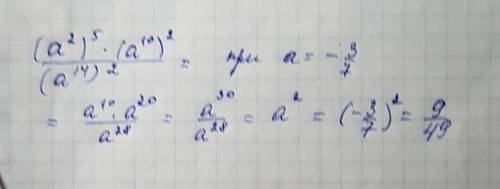 (a²)⁵ · (a¹⁰)² / (a¹⁴)² = при a = -3/7
= a¹⁰ · a²⁰ / a²⁸ = a³⁰ / a²⁸ = a² = (-3/7)² = 9/49